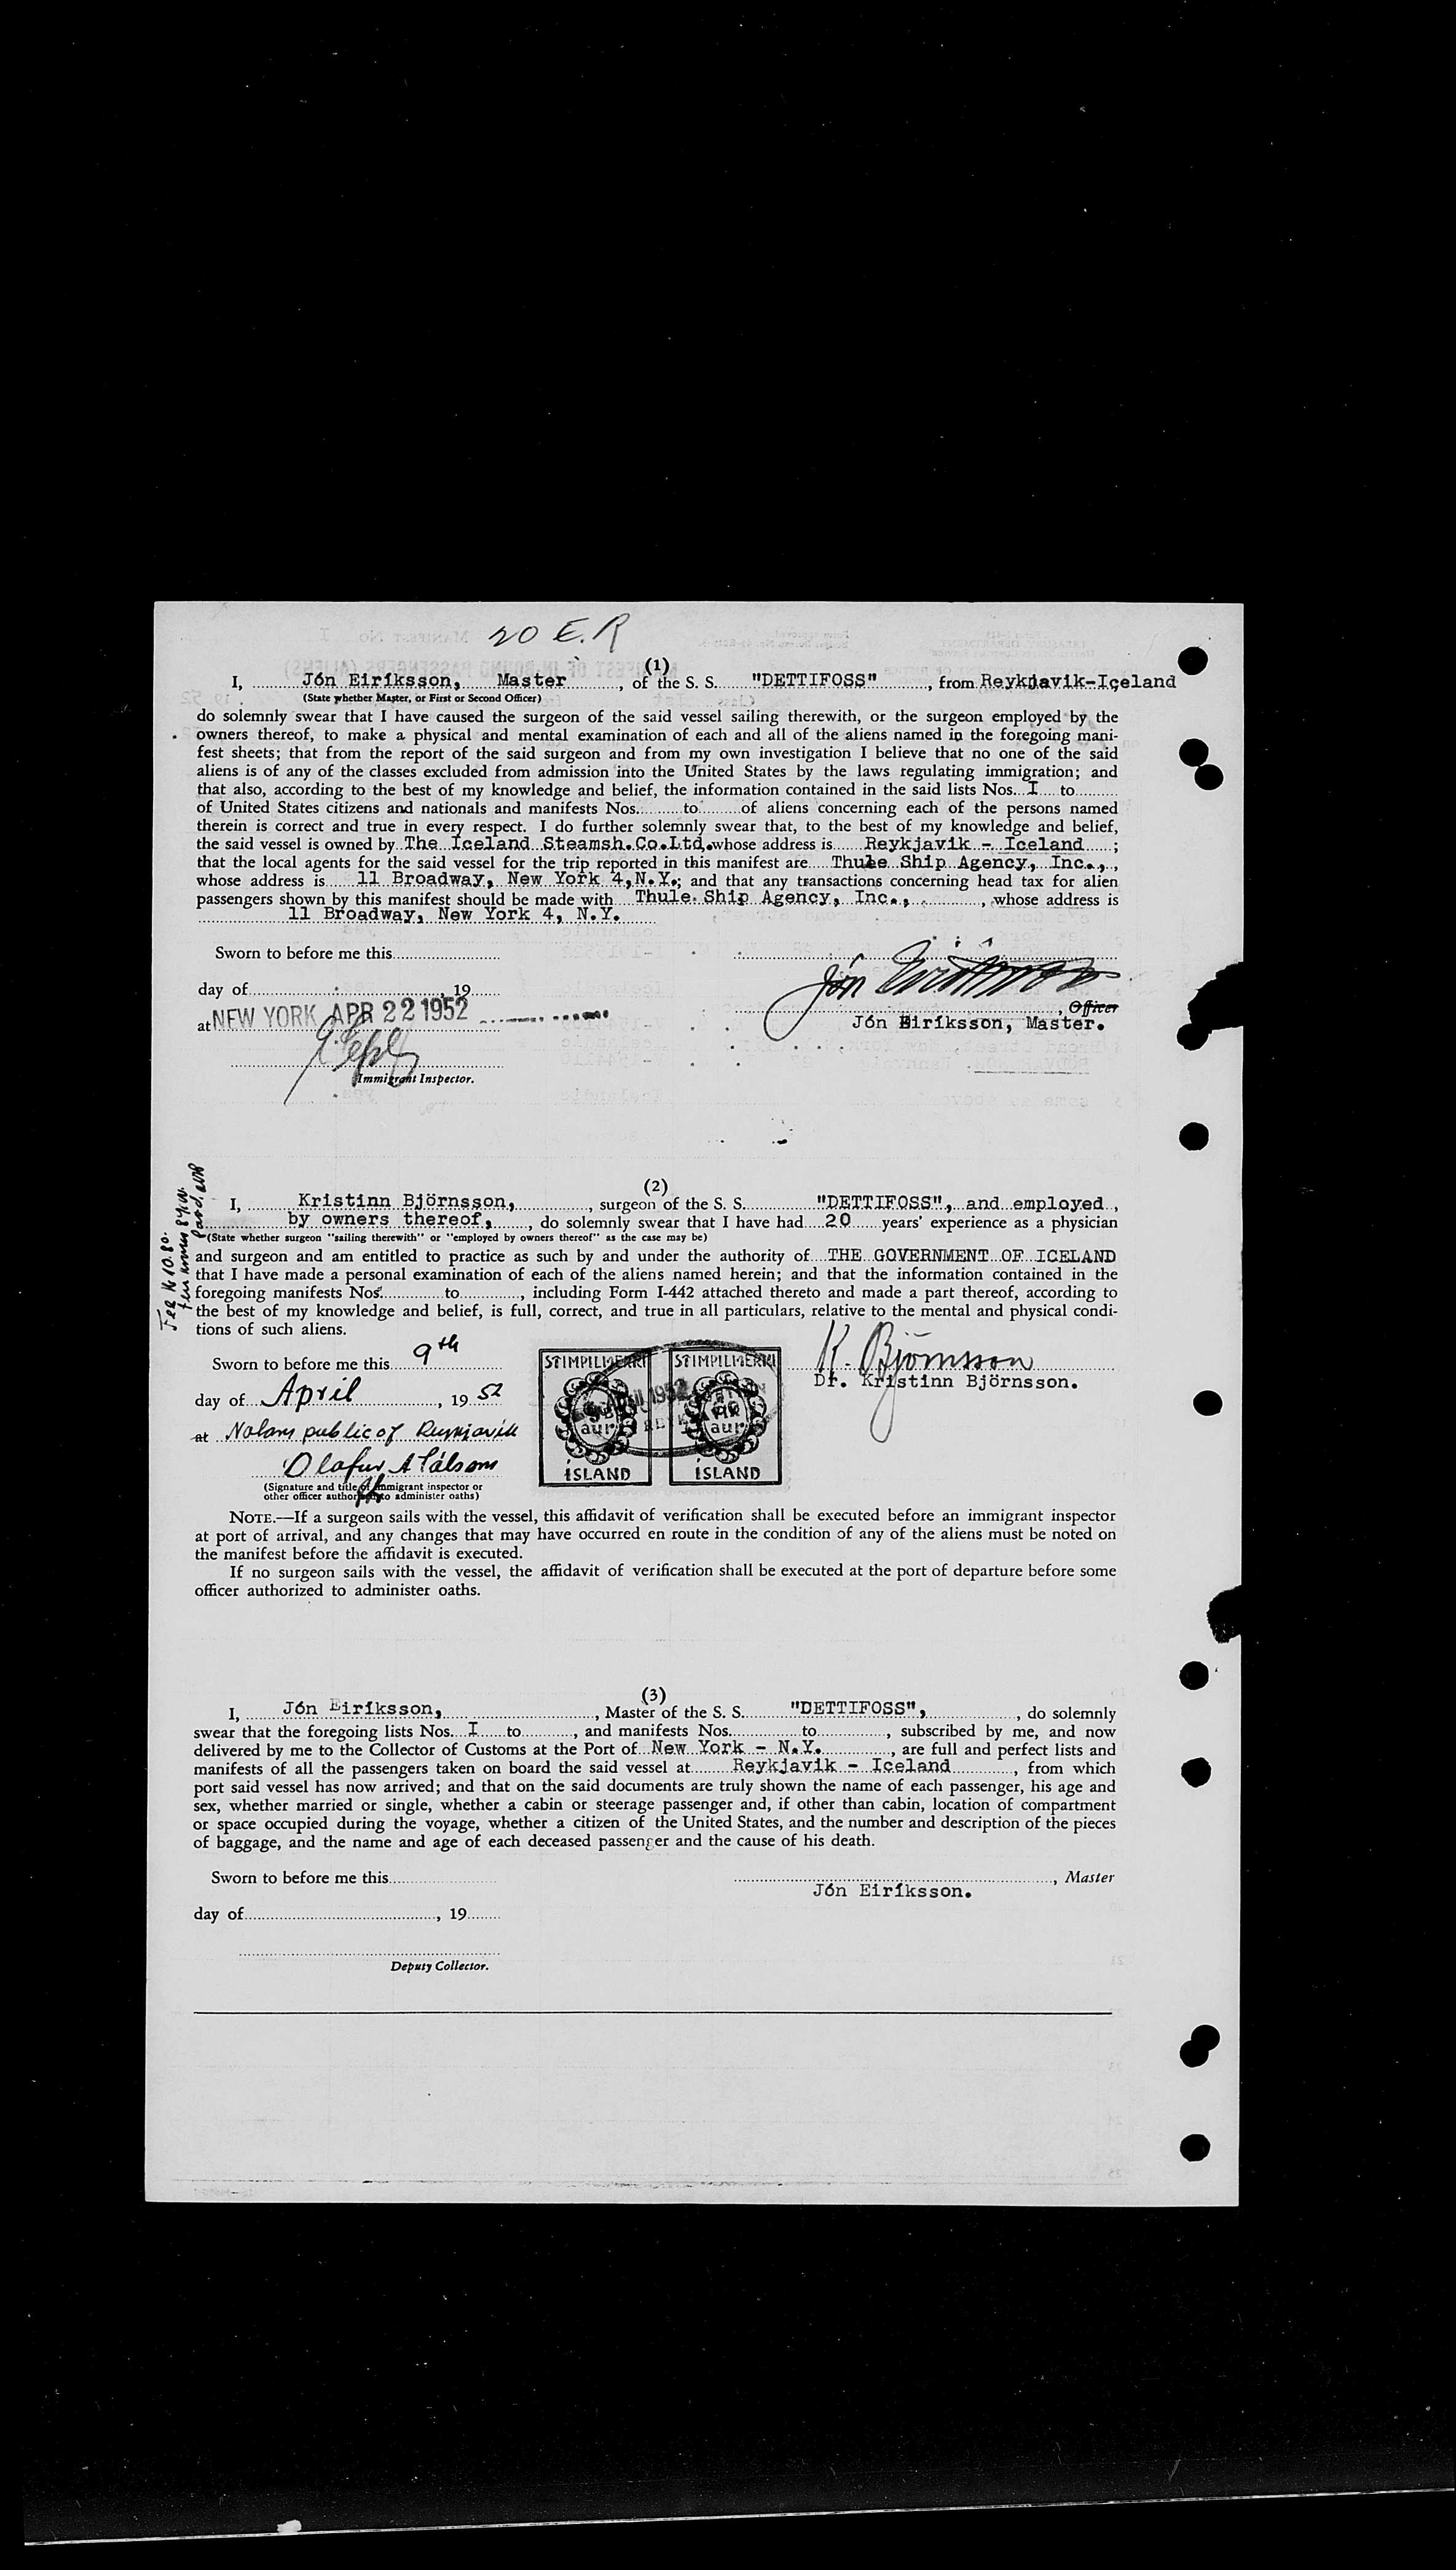 20 E.R
(1)
I, Jón Eiríksson, Master, of the S. S. "DETTIFOSS", from Reykjavik-Iceland
(State whether Master, or First or Second Officer)
do solemnly swear that I have caused the surgeon of the said vessel sailing therewith, or the surgeon employed by the
owners thereof, to make a physical and mental examination of each and all of the aliens named in the foregoing mani-
fest sheets; that from the report of the said surgeon and from my own investigation I believe that no one of the said
aliens is of any of the classes excluded from admission into the United States by the laws regulating immigration; and
that also, according to the best of my knowledge and belief, the information contained in the said lists Nos. I to
of United States citizens and nationals and manifests Nos. to of aliens concerning each of the persons named
therein is correct and true in every respect. I do further solemnly swear that, to the best of my knowledge and belief,
the said vessel is owned by The Iceland Steamsh. Co. Ltd. whose address is Reykjavik - Iceland ;
that the local agents for the said vessel for the trip reported in this manifest are Thule Ship Agency, Inc.,
whose address is 11 Broadway, New York 4, N.Y.; and that any transactions concerning head tax for alien
passengers shown by this manifest should be made with Thule Ship Agency, Inc., , whose address is
11 Broadway, New York 4, N.Y.
Sworn to before me this
day of , 19
at NEW YORK APR 22 1952
Jón Eiríksson
, Officer
Jón Eiríksson, Master.
Immigrant Inspector.
Fee Kr 10.80.
(2)
I, Kristinn Björnsson, , surgeon of the S. S. "DETTIFOSS", and employed ,
by owners thereof, , do solemnly swear that I have had 20 years' experience as a physician
(State whether surgeon "sailing therewith" or "employed by owners thereof" as the case may be)
and surgeon and am entitled to practice as such by and under the authority of THE GOVERNMENT OF ICELAND
that I have made a personal examination of each of the aliens named herein; and that the information contained in the
foregoing manifests Nos. to , including Form I-442 attached thereto and made a part thereof, according to
the best of my knowledge and belief, is full, correct, and true in all particulars, relative to the mental and physical condi-
tions of such aliens.
Sworn to before me this 9th
day of April , 19 52
at Notary public of Reykjavik
Olafur A Pálsson
(Signature and title of immigrant inspector or
other officer authorized to administer oaths)
STIMPILMERKI STIMPILMERKI
aur aur
ÍSLAND ÍSLAND
K. Björnsson
Dr. Kristinn Björnsson.
NOTE.—If a surgeon sails with the vessel, this affidavit of verification shall be executed before an immigrant inspector
at port of arrival, and any changes that may have occurred en route in the condition of any of the aliens must be noted on
the manifest before the affidavit is executed.
If no surgeon sails with the vessel, the affidavit of verification shall be executed at the port of departure before some
officer authorized to administer oaths.
(3)
I, Jón Eiríksson, , Master of the S. S. "DETTIFOSS", , do solemnly
swear that the foregoing lists Nos. I to , and manifests Nos. to , subscribed by me, and now
delivered by me to the Collector of Customs at the Port of New York - N.Y. , are full and perfect lists and
manifests of all the passengers taken on board the said vessel at Reykjavik - Iceland , from which
port said vessel has now arrived; and that on the said documents are truly shown the name of each passenger, his age and
sex, whether married or single, whether a cabin or steerage passenger and, if other than cabin, location of compartment
or space occupied during the voyage, whether a citizen of the United States, and the number and description of the pieces
of baggage, and the name and age of each deceased passenger and the cause of his death.
Sworn to before me this
, Master
Jón Eiríksson.
day of , 19
Deputy Collector.